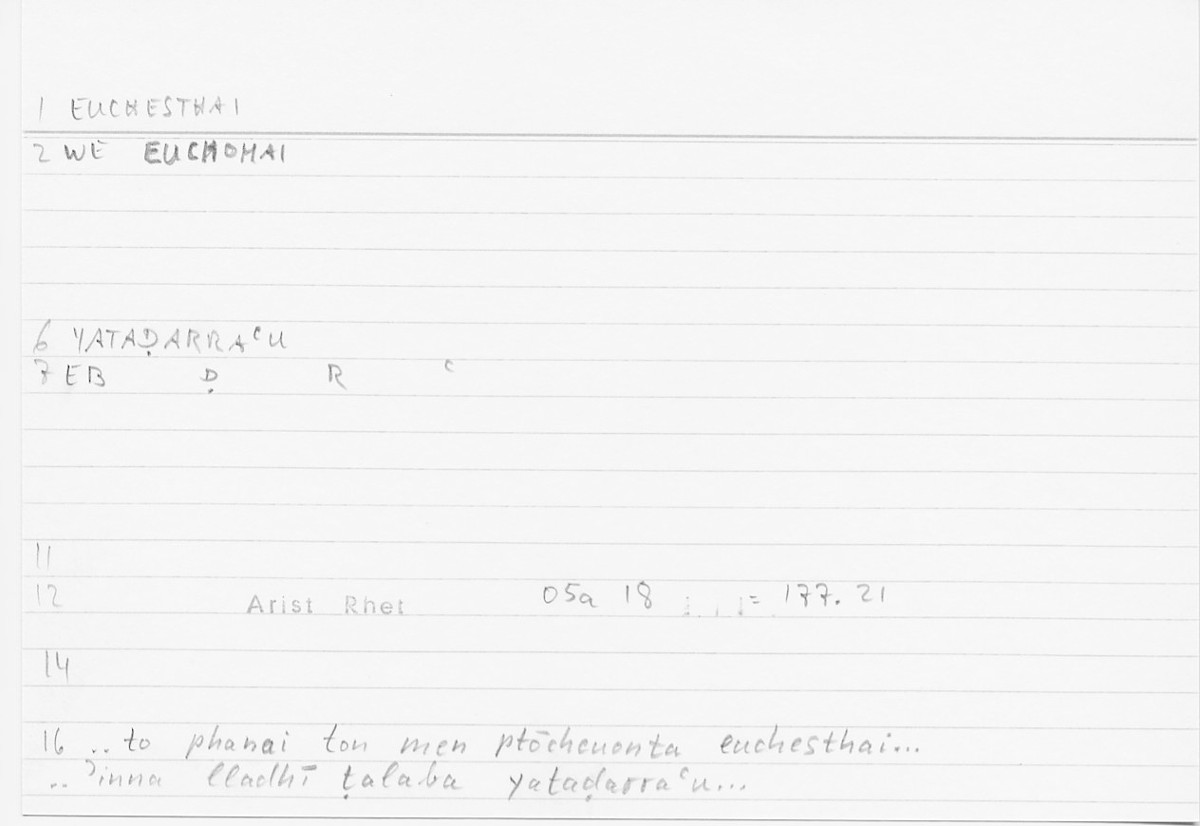 1 EUCHESTHAI
2 WE EUCHOMAI
6 YATAḌARRAʿU
7 EB Ḍ R ʿ
11
12 Arist Rhet 05a 18 = 177. 21
14
16 .. to phanai ton men ptōcheuonta euchesthai...
.. ʾinna lladhī ṭalaba yataḍarraʿu...